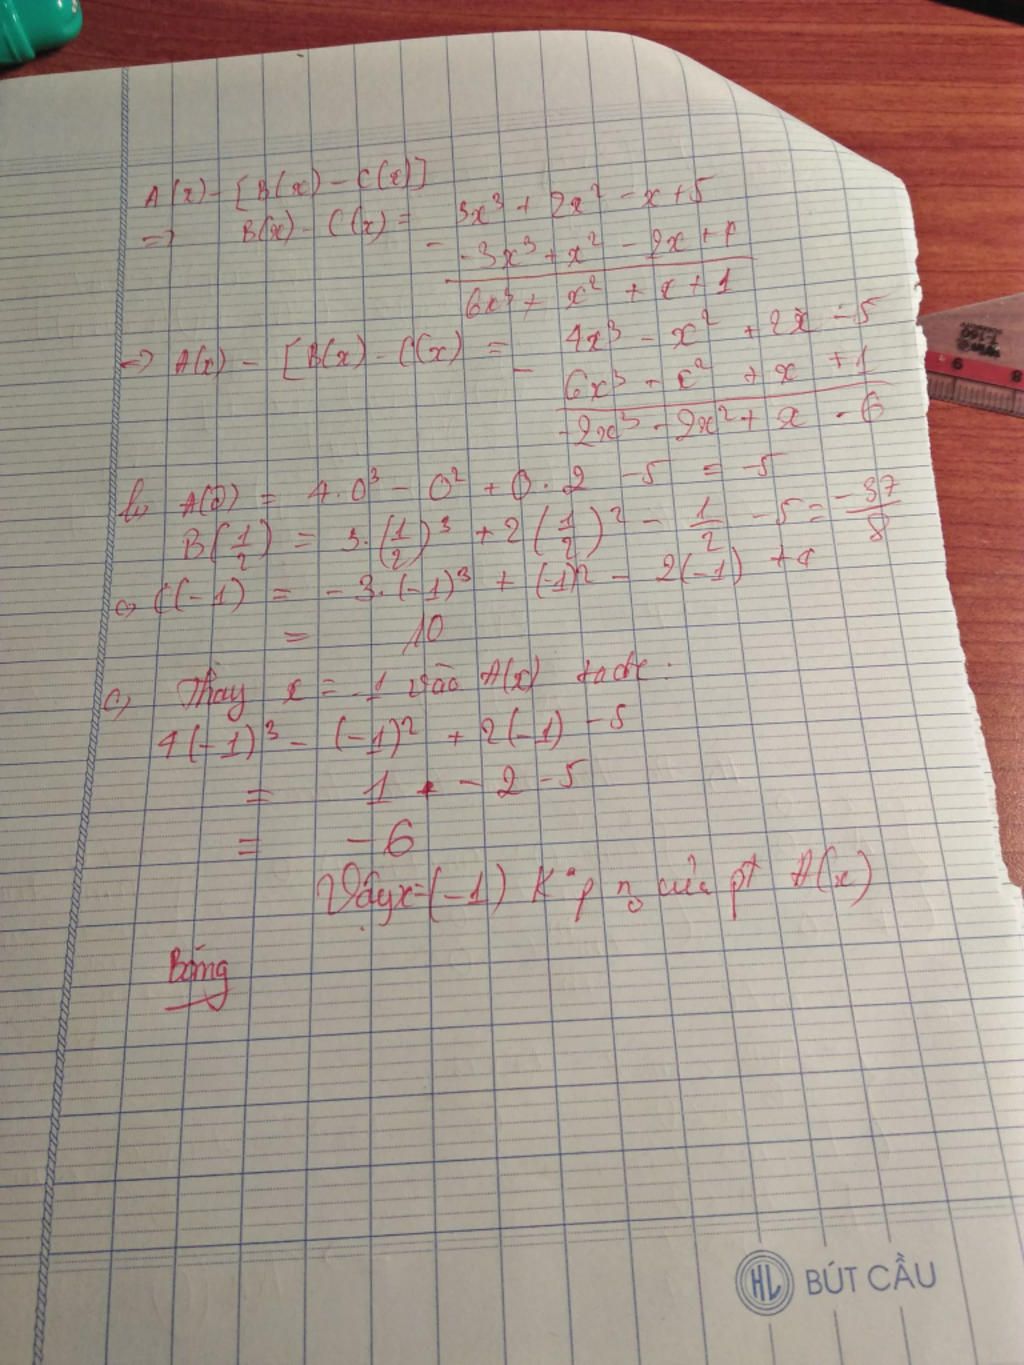 A(x) - [B(x) - C(x)]
=> B(x) - C(x) = 3x³ + 2x² - x + 5
- -3x³ + x² - 2x + 4
6x³ + x² + x + 1
=> A(x) - [B(x) - C(x) = 4x³ - x² + 2x - 5
- 6x³ + x² + x + 1
-2x³ - 2x² + x - 6
b, A(0) = 4.0³ - 0² + 0.2 - 5 = -5
B(1/2) = 3.(1/2)³ + 2(1/2)² - 1/2 - 5 = -37/8
C(-1) = -3.(-1)³ + (-1)² - 2(-1) + 4
= 10
c, Thay x = -1 vào A(x) ta đc:
4(-1)³ - (-1)² + 2(-1) - 5
= 1 - 2 - 5
= -6
Vậy x=(-1) K p no của pt A(x)
HL BÚT CẦU